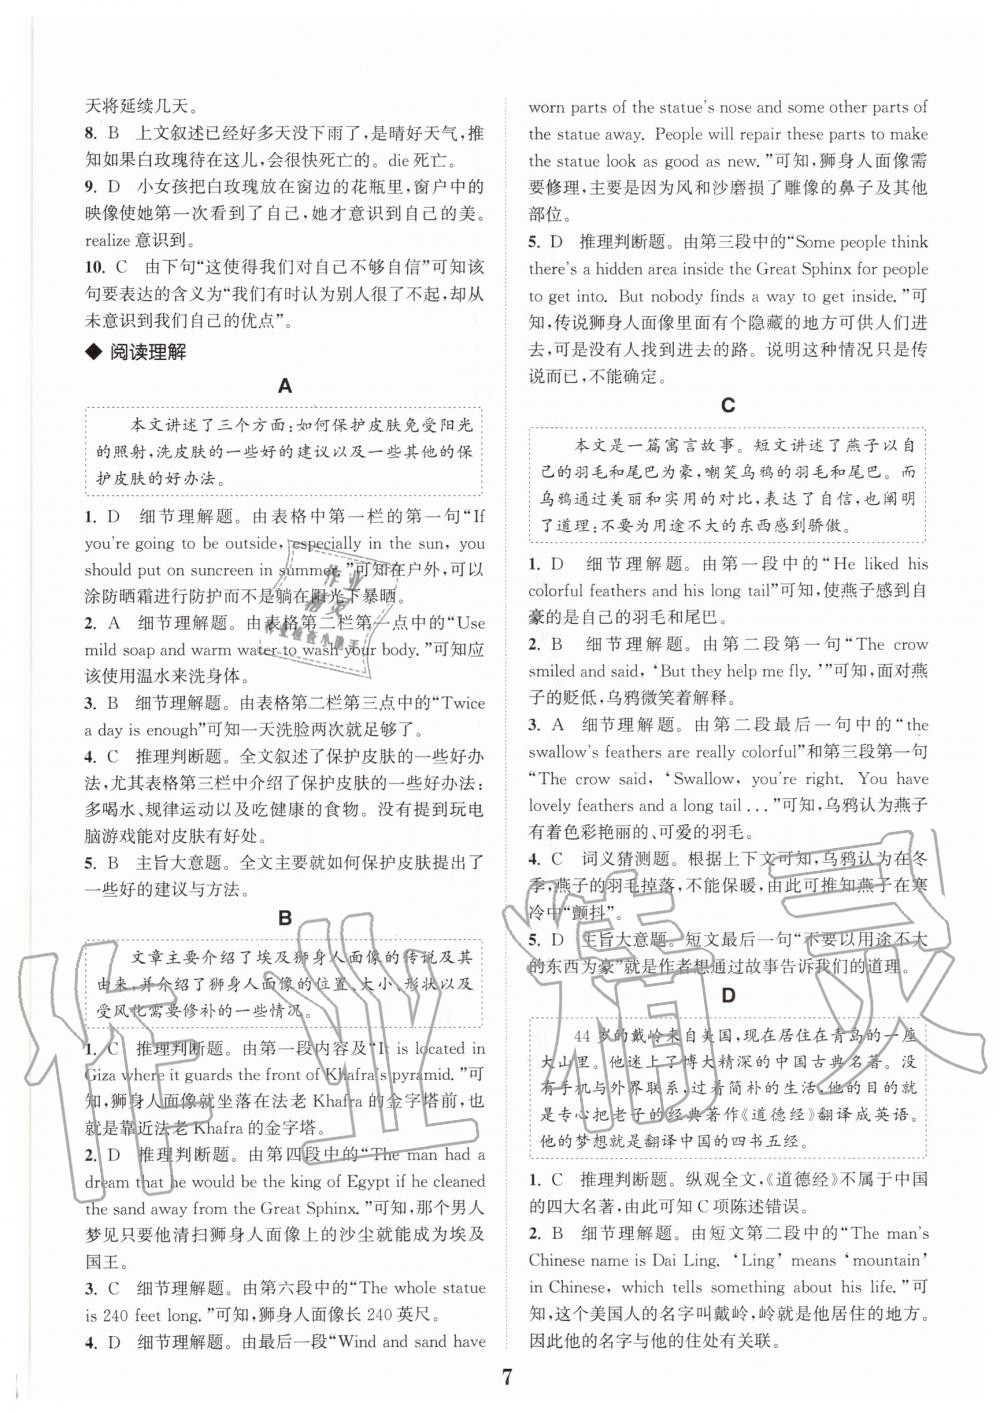 天将延续几天。
8. B　上文叙述已经好多天没下雨了,是晴好天气,推
知如果白玫瑰待在这儿,会很快死亡的。die 死亡。
9. D　小女孩把白玫瑰放在窗边的花瓶里,窗户中的
映像使她第一次看到了自己,她才意识到自己的美。
realize 意识到。
10. C　由下句“这使得我们对自己不够自信”可知该
句要表达的含义为“我们有时认为别人很了不起,却从
未意识到我们自己的优点”。
◆ 阅读理解
A
本文讲述了三个方面:如何保护皮肤免受阳光
的照射,洗皮肤的一些好的建议以及一些其他的保
护皮肤的好办法。
1. D　细节理解题。由表格中第一栏的第一句“If
you're going to be outside, especially in the sun, you
should put on suncreen in summer.”可知在户外,可以
涂防晒霜进行防护而不是躺在阳光下暴晒。
2. A　细节理解题。由表格第二栏第一点中的“Use
mild soap and warm water to wash your body.”可知应
该使用温水来洗身体。
3. B　细节理解题。由表格第二栏第三点中的“Twice
a day is enough”可知一天洗脸两次就足够了。
4. C　推理判断题。全文叙述了保护皮肤的一些好办
法,尤其表格第三栏中介绍了保护皮肤的一些好办法:
多喝水、规律运动以及吃健康的食物。没有提到玩电
脑游戏能对皮肤有好处。
5. B　主旨大意题。全文主要就如何保护皮肤提出了
一些好的建议与方法。
B
文章主要介绍了埃及狮身人面像的传说及其
由来,并介绍了狮身人面像的位置、大小、形状以及
受风化需要修补的一些情况。
1. C　推理判断题。由第一段内容及“It is located in
Giza where it guards the front of Khafra's pyramid.”可
知,狮身人面像就坐落在法老 Khafra 的金字塔前,也
就是靠近法老 Khafra 的金字塔。
2. D　推理判断题。由第四段中的“The man had a
dream that he would be the king of Egypt if he cleaned
the sand away from the Great Sphinx.”可知,那个男人
梦见只要他清扫狮身人面像上的沙尘就能成为埃及
国王。
3. C　细节理解题。由第六段中的“The whole statue
is 240 feet long.”可知,狮身人面像长 240 英尺。
4. D　细节理解题。由最后一段“Wind and sand have
worn parts of the statue's nose and some other parts of
the statue away. People will repair these parts to make
the statue look as good as new.”可知,狮身人面像需
要修理,主要是因为风和沙磨损了雕像的鼻子及其他
部位。
5. D　推理判断题。由第三段中的“Some people think
there's a hidden area inside the Great Sphinx for people
to get into. But nobody finds a way to get inside.”可
知,传说狮身人面像里面有个隐藏的地方可供人们进
去,可是没有人找到进去的路。说明这种情况只是传
说而已,不能确定。
C
本文是一篇寓言故事。短文讲述了燕子以自
己的羽毛和尾巴为豪,嘲笑乌鸦的羽毛和尾巴。而
乌鸦通过美丽和实用的对比,表达了自信,也阐明
了道理:不要为用途不大的东西感到骄傲。
1. D　细节理解题。由第一段中的“He liked his
colorful feathers and his long tail”可知,使燕子感到自
豪的是自己的羽毛和尾巴。
2. B　细节理解题。由第二段第一句中“The crow
smiled and said, ‘But they help me fly.’”可知,面对燕
子的贬低,乌鸦微笑着解释。
3. A　细节理解题。由第二段最后一句中的“the
swallow's feathers are really colorful”和第三段第一句
“The crow said, ‘Swallow, you're right. You have
lovely feathers and a long tail ...”可知,乌鸦认为燕子
有着色彩艳丽的、可爱的羽毛。
4. C　词义猜测题。根据上下文可知,乌鸦认为在冬
季,燕子的羽毛掉落,不能保暖,由此可推知燕子在寒
冷中“颤抖”。
5. D　主旨大意题。短文最后一句“不要以用途不大
的东西为豪”就是作者想通过故事告诉我们的道理。
D
44 岁的戴岭来自美国,现在居住在青岛的一座
大山里。他迷上了博大精深的中国古典名著。没
有手机与外界联系,过着简朴的生活,他的目的就
是专心把老子的经典著作《道德经》翻译成英语。
他的梦想就是翻译中国的四书五经。
1. C　推理判断题。纵观全文,《道德经》不属于中国
的四大名著,由此可知 C 项陈述错误。
2. B　细节理解题。由短文第二段中的“The man's
Chinese name is Dai Ling. ‘Ling’ means ‘mountain’
in Chinese, which tells something about his life.”可
知,这个美国人的名字叫戴岭,岭就是他居住的地方。
因此他的名字与他的住处有关联。
7
作业精灵
作业
精灵
作业检查小助手